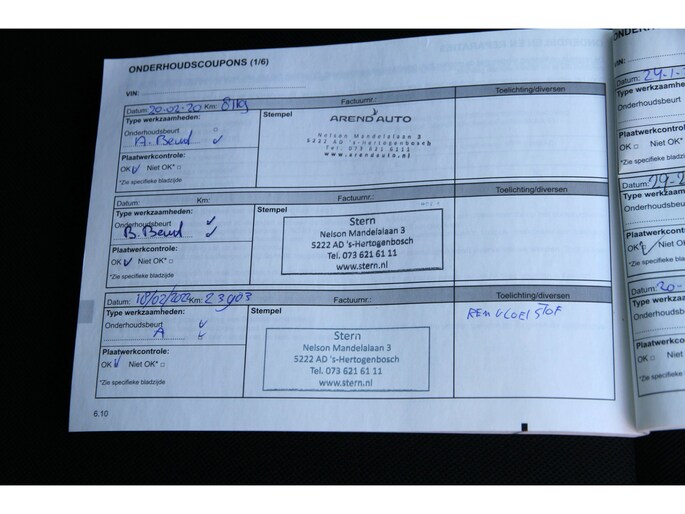 ONDERHOUDSCOUPONS (1/6)
VIN:
Datum: 20-02-20 Km: 8119 Factuurnr.: Toelichting/diversen
Type werkzaamheden: Stempel
Onderhoudsbeurt □
A. Beurt ✓
Plaatwerkcontrole:
OK ✓ Niet OK* □
*Zie specifieke bladzijde
AREND AUTO
Nelson Mandelalaan 3
5222 AD 's-Hertogenbosch
Tel. 073 621 6111
www.arendauto.nl
Datum: Km: Factuurnr.: Toelichting/diversen
Type werkzaamheden: Stempel
Onderhoudsbeurt ✓
B. Beurt ✓
Plaatwerkcontrole:
OK ✓ Niet OK* □
*Zie specifieke bladzijde
Stern
Nelson Mandelalaan 3
5222 AD 's-Hertogenbosch
Tel. 073 621 61 11
www.stern.nl
Datum: Km: 23903 Factuurnr.: Toelichting/diversen
Type werkzaamheden: Stempel
Onderhoudsbeurt ✓
A ✓
Plaatwerkcontrole:
OK ✓ Niet OK* □
*Zie specifieke bladzijde
Stern
Nelson Mandelalaan 3
5222 AD 's-Hertogenbosch
Tel. 073 621 61 11
www.stern.nl
REMVLOEISTOF
6.10
VIN:
Datum:
Type werkzaamhe
Onderhoudsbeurt
Plaatwerkcontro
OK □ Niet OK
*Zie specifieke bla
Datum:
Type werkzaamhe
Onderhoudsbeu
Plaatwerkco
OK Niet O
*Zie specifieke
Datum:
Type werkza
Onderhoudsb
Plaatwerkc
OK □ Nie
*Zie specifie